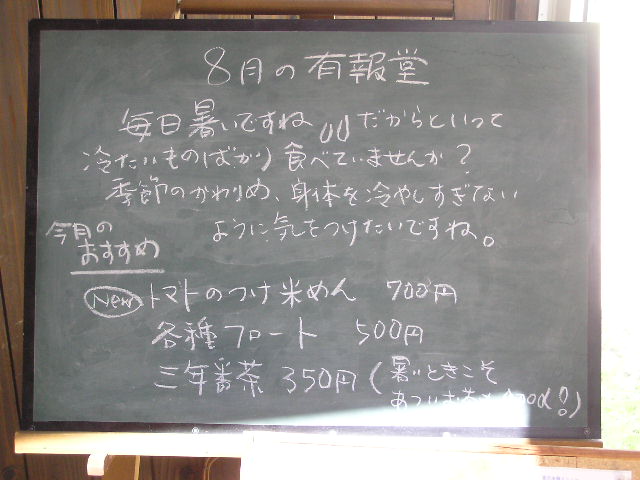 8月の有報堂
毎日暑いですね。だからといって
冷たいものばかり食べていませんか？
季節のかわりめ、身体を冷やしすぎない
ように気をつけたいですね。
今月の
おすすめ
New トマトのつけ米めん 700円
各種フロート 500円
三年番茶 350円(暑いときこそ
あついお茶も good!?)